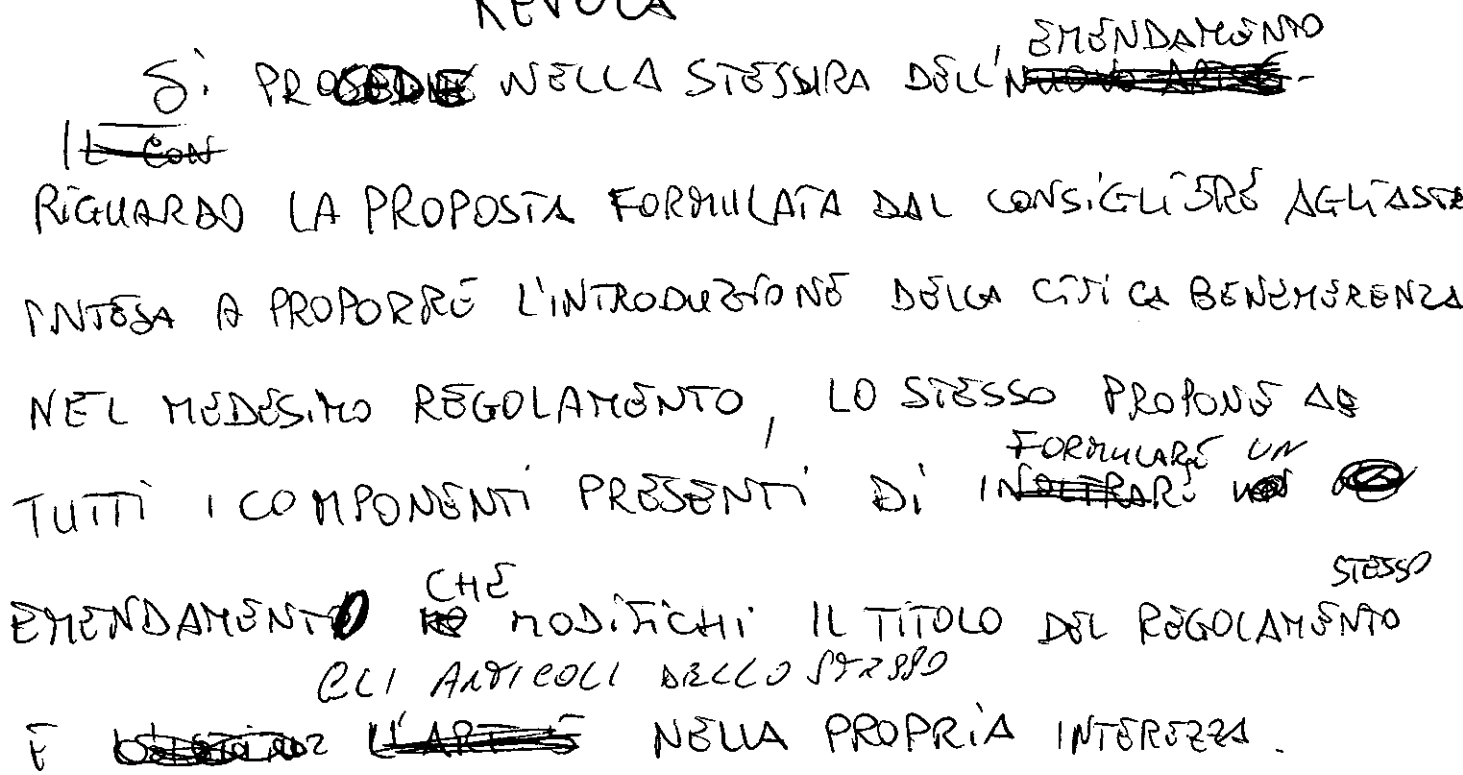 REVOCA
EMENDAMENTO
Si PROCEDE NELLA STESURA DELL'
IL CON
RIGUARDO LA PROPOSTA FORMULATA DAL CONSIGLIERE AGLIASTE
INTESA A PROPORRE L'INTRODUZIONE DELLA CIVICA BENEMERENZA
NEL MEDESIMO REGOLAMENTO, LO STESSO PROPONE A
TUTTI I COMPONENTI PRESENTI DI
FORMULARE UN
CHE STESSO
EMENDAMENTO MODIFICHI IL TITOLO DEL REGOLAMENTO
GLI ARTICOLI DELLO STESSO
E NELLA PROPRIA INTEREZZA.